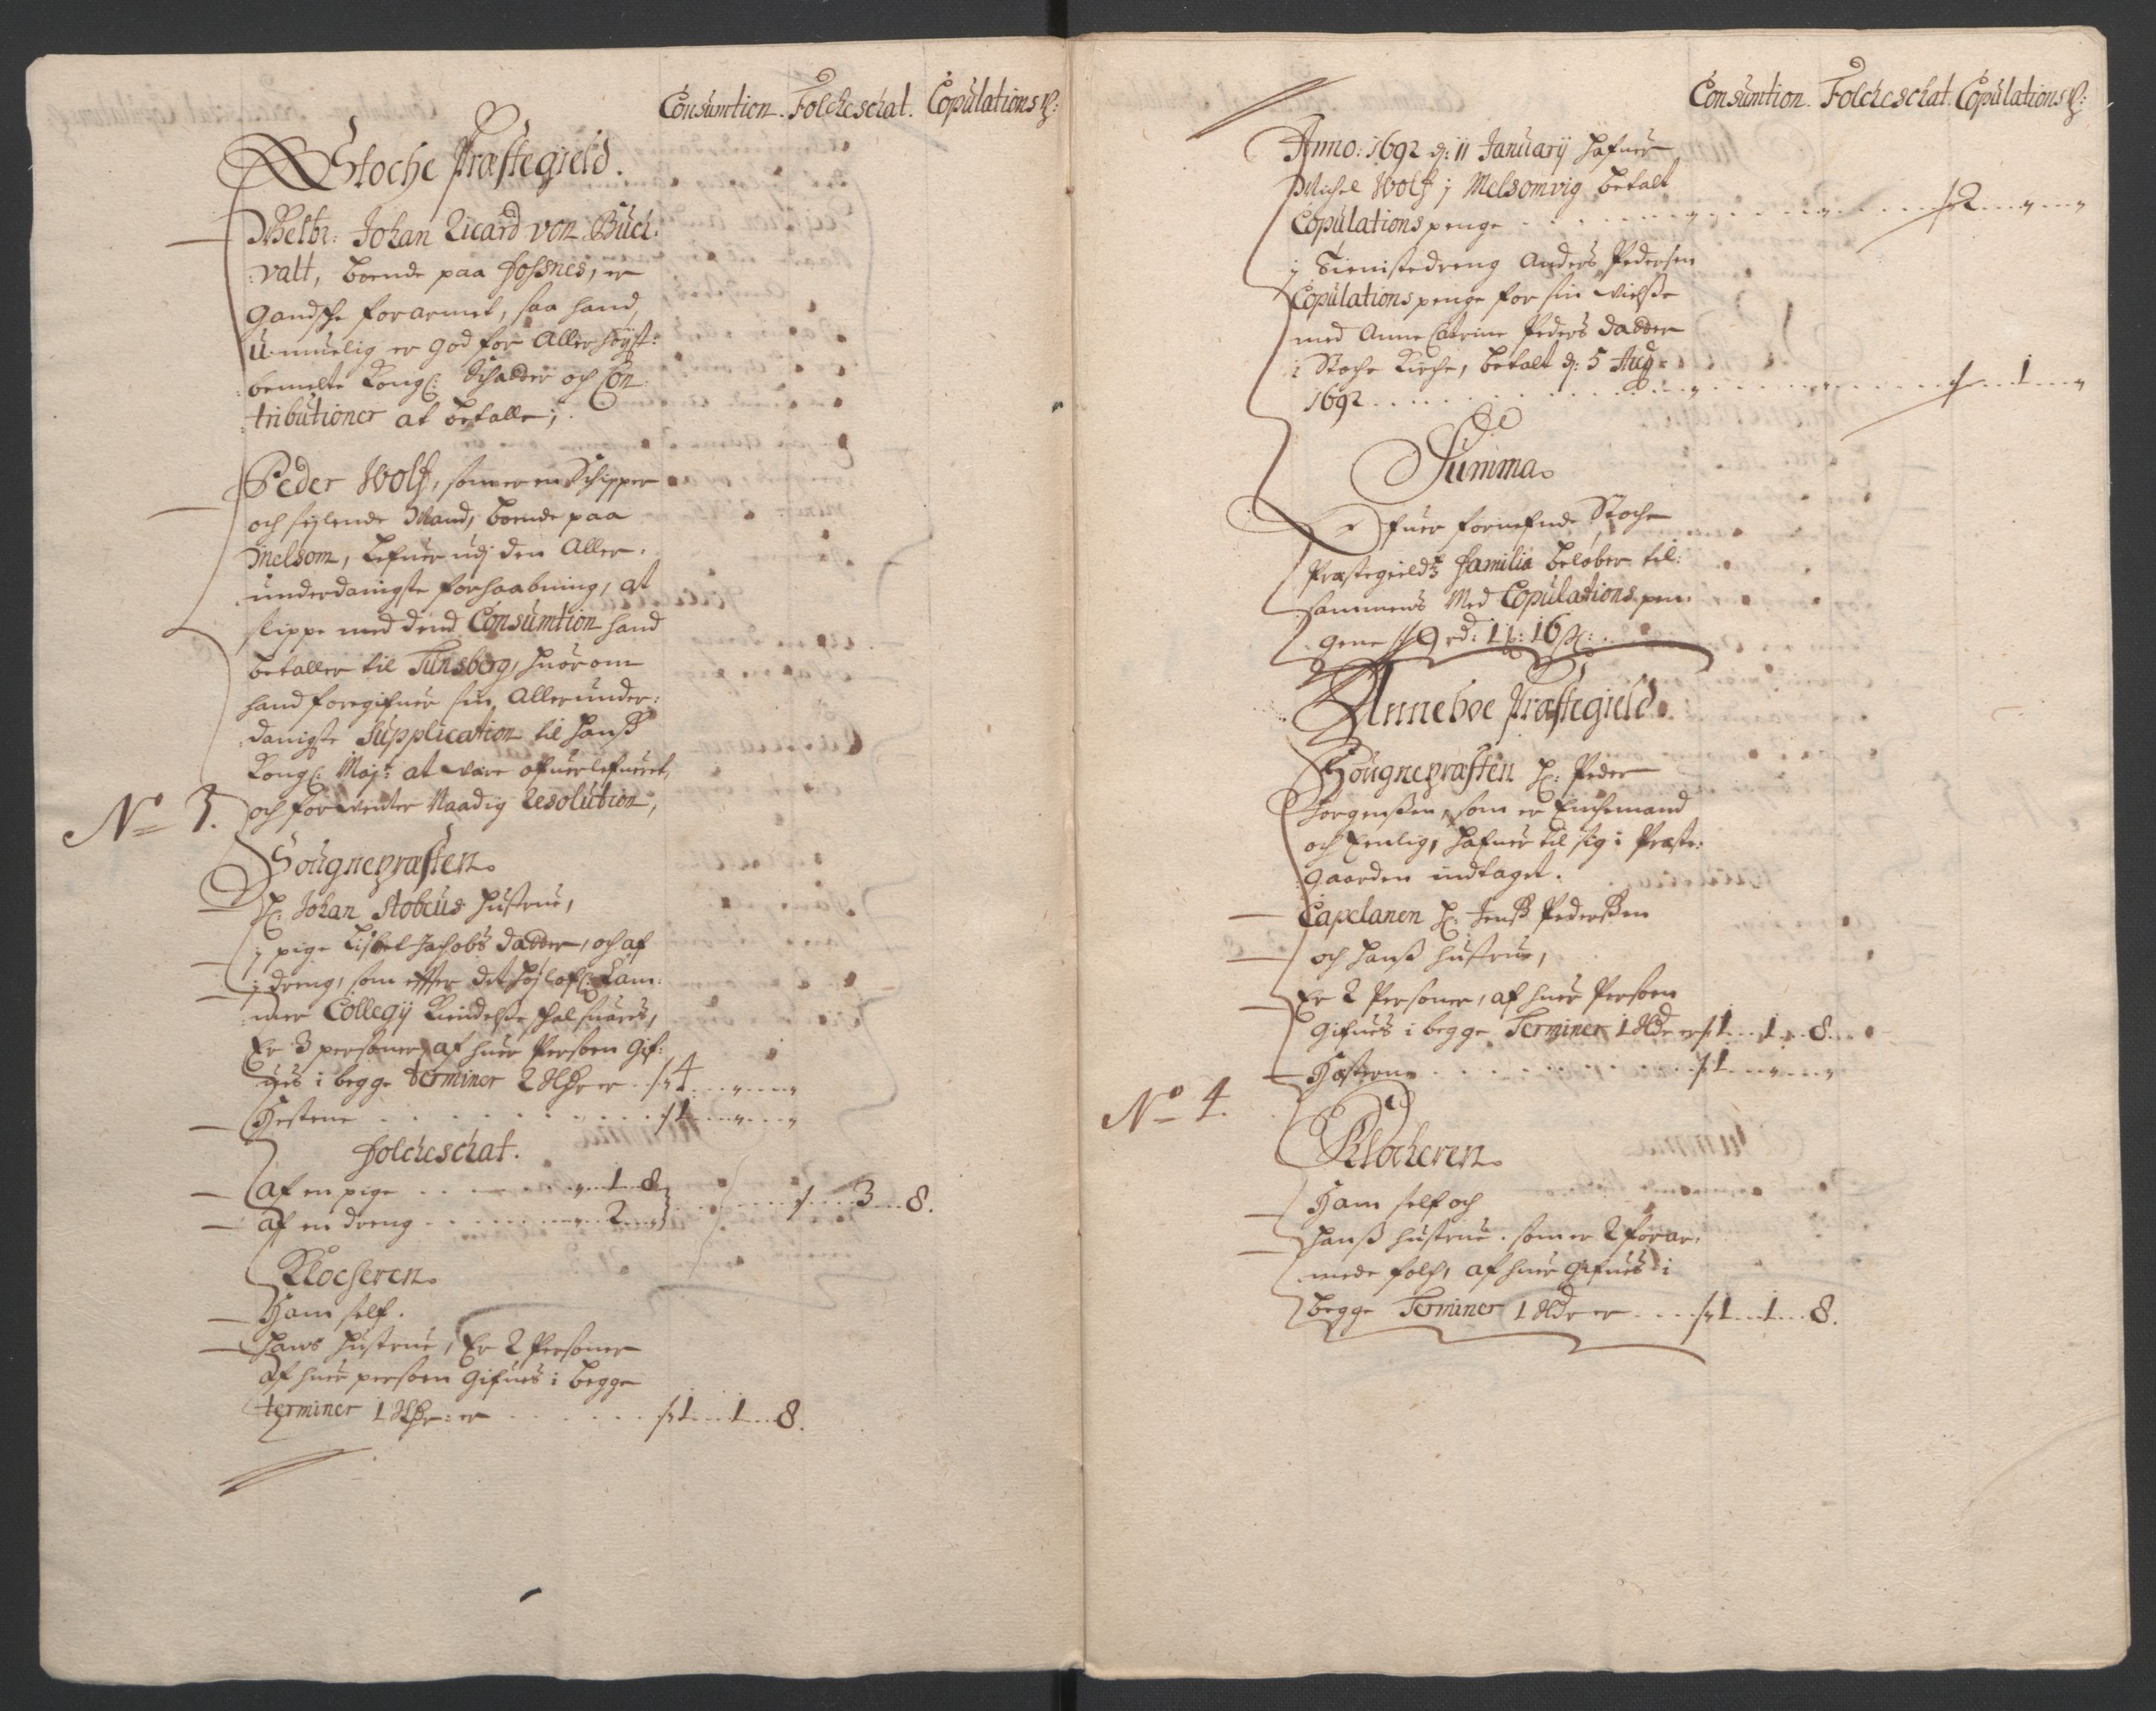 Consumtion. Folcheschat. Copulations P:
Stoche Præstegield.
Welbr: Johan Ricard von Buch:
valt, boende paa Fossnes, er
gandsche forarmet, saa hand
u-muelig er god for Allerhøyst:
bemelte Kongl: Schatter och Con
tributioner at betalle;
Peder Wolf, som er en Schipper
och seylende Mand, boende paa
Melsom, lefuer udj den Aller.
underdanigste forhaabning, at
slippe med dend Consumtion hand
betaller til Tunsberg, huorom
hand foregifuer sin Allerunder:
danigste Supplication til Hanß
Kongl: Maj: at være ofuerlefueret,
och forwenter Naadig Resolution,
No 3.
Sougnepræsten.
H: Johan Stobeus Hustrue,
1 pige Lisbet Jachobs Datter, och af
1 dreng, som effter det Høylofl: Cam:
mer Collegij Kiendelße schal suares,
Er 3 personer, af huer Persoen Gif:
ues i begge terminer 2 Rdr er 4
Hestene 1
Folcheschat.
af en pige 1 8
af en dreng 2
3 8.
Klocheren.
Ham self.
Hans Hustrue, Er 2 Personer
af huer persoen Gifues i begge
terminer 1 er 1 1 8.
Consumtion. Folcheschat. Copulations P:
Anno: 1692 d: 11 Januarij Hafuer
Michel Wolf i Melsomvig betalt
Copulations penge 2
1 Tienistedreng Anders Pedersen
Copulations penge for sin vielße
med Anne Catrine Peders Datter
i Stoche Kirche, betalt d: 5 Aug:
1692 1
Summa
Ofuer fornefnde Stoche
Præstegields Familie beløber til:
sammens Med Copulations pen:
gene 9 rd: 1 : 16 s:
Anneboe Præstegield.
Sougnepræsten H: Peder
Jørgensen, som er Enchemand
och Eenlig, Hafuer til sig i Præste:
gaarden indtaget.
Capelanen H: Jenß Pederßen
och Hanß Hustrue,
Er 2 Personer, af huer Persoen
Gifues i begge Terminer 1 er 1 1 8
Hesterne 1
No 4.
Klocheren.
Ham self och
Hanß Hustrue. som er 2 forar:
mede folch, af huer Gifues i
begge Terminer 1 er 1 1 8.